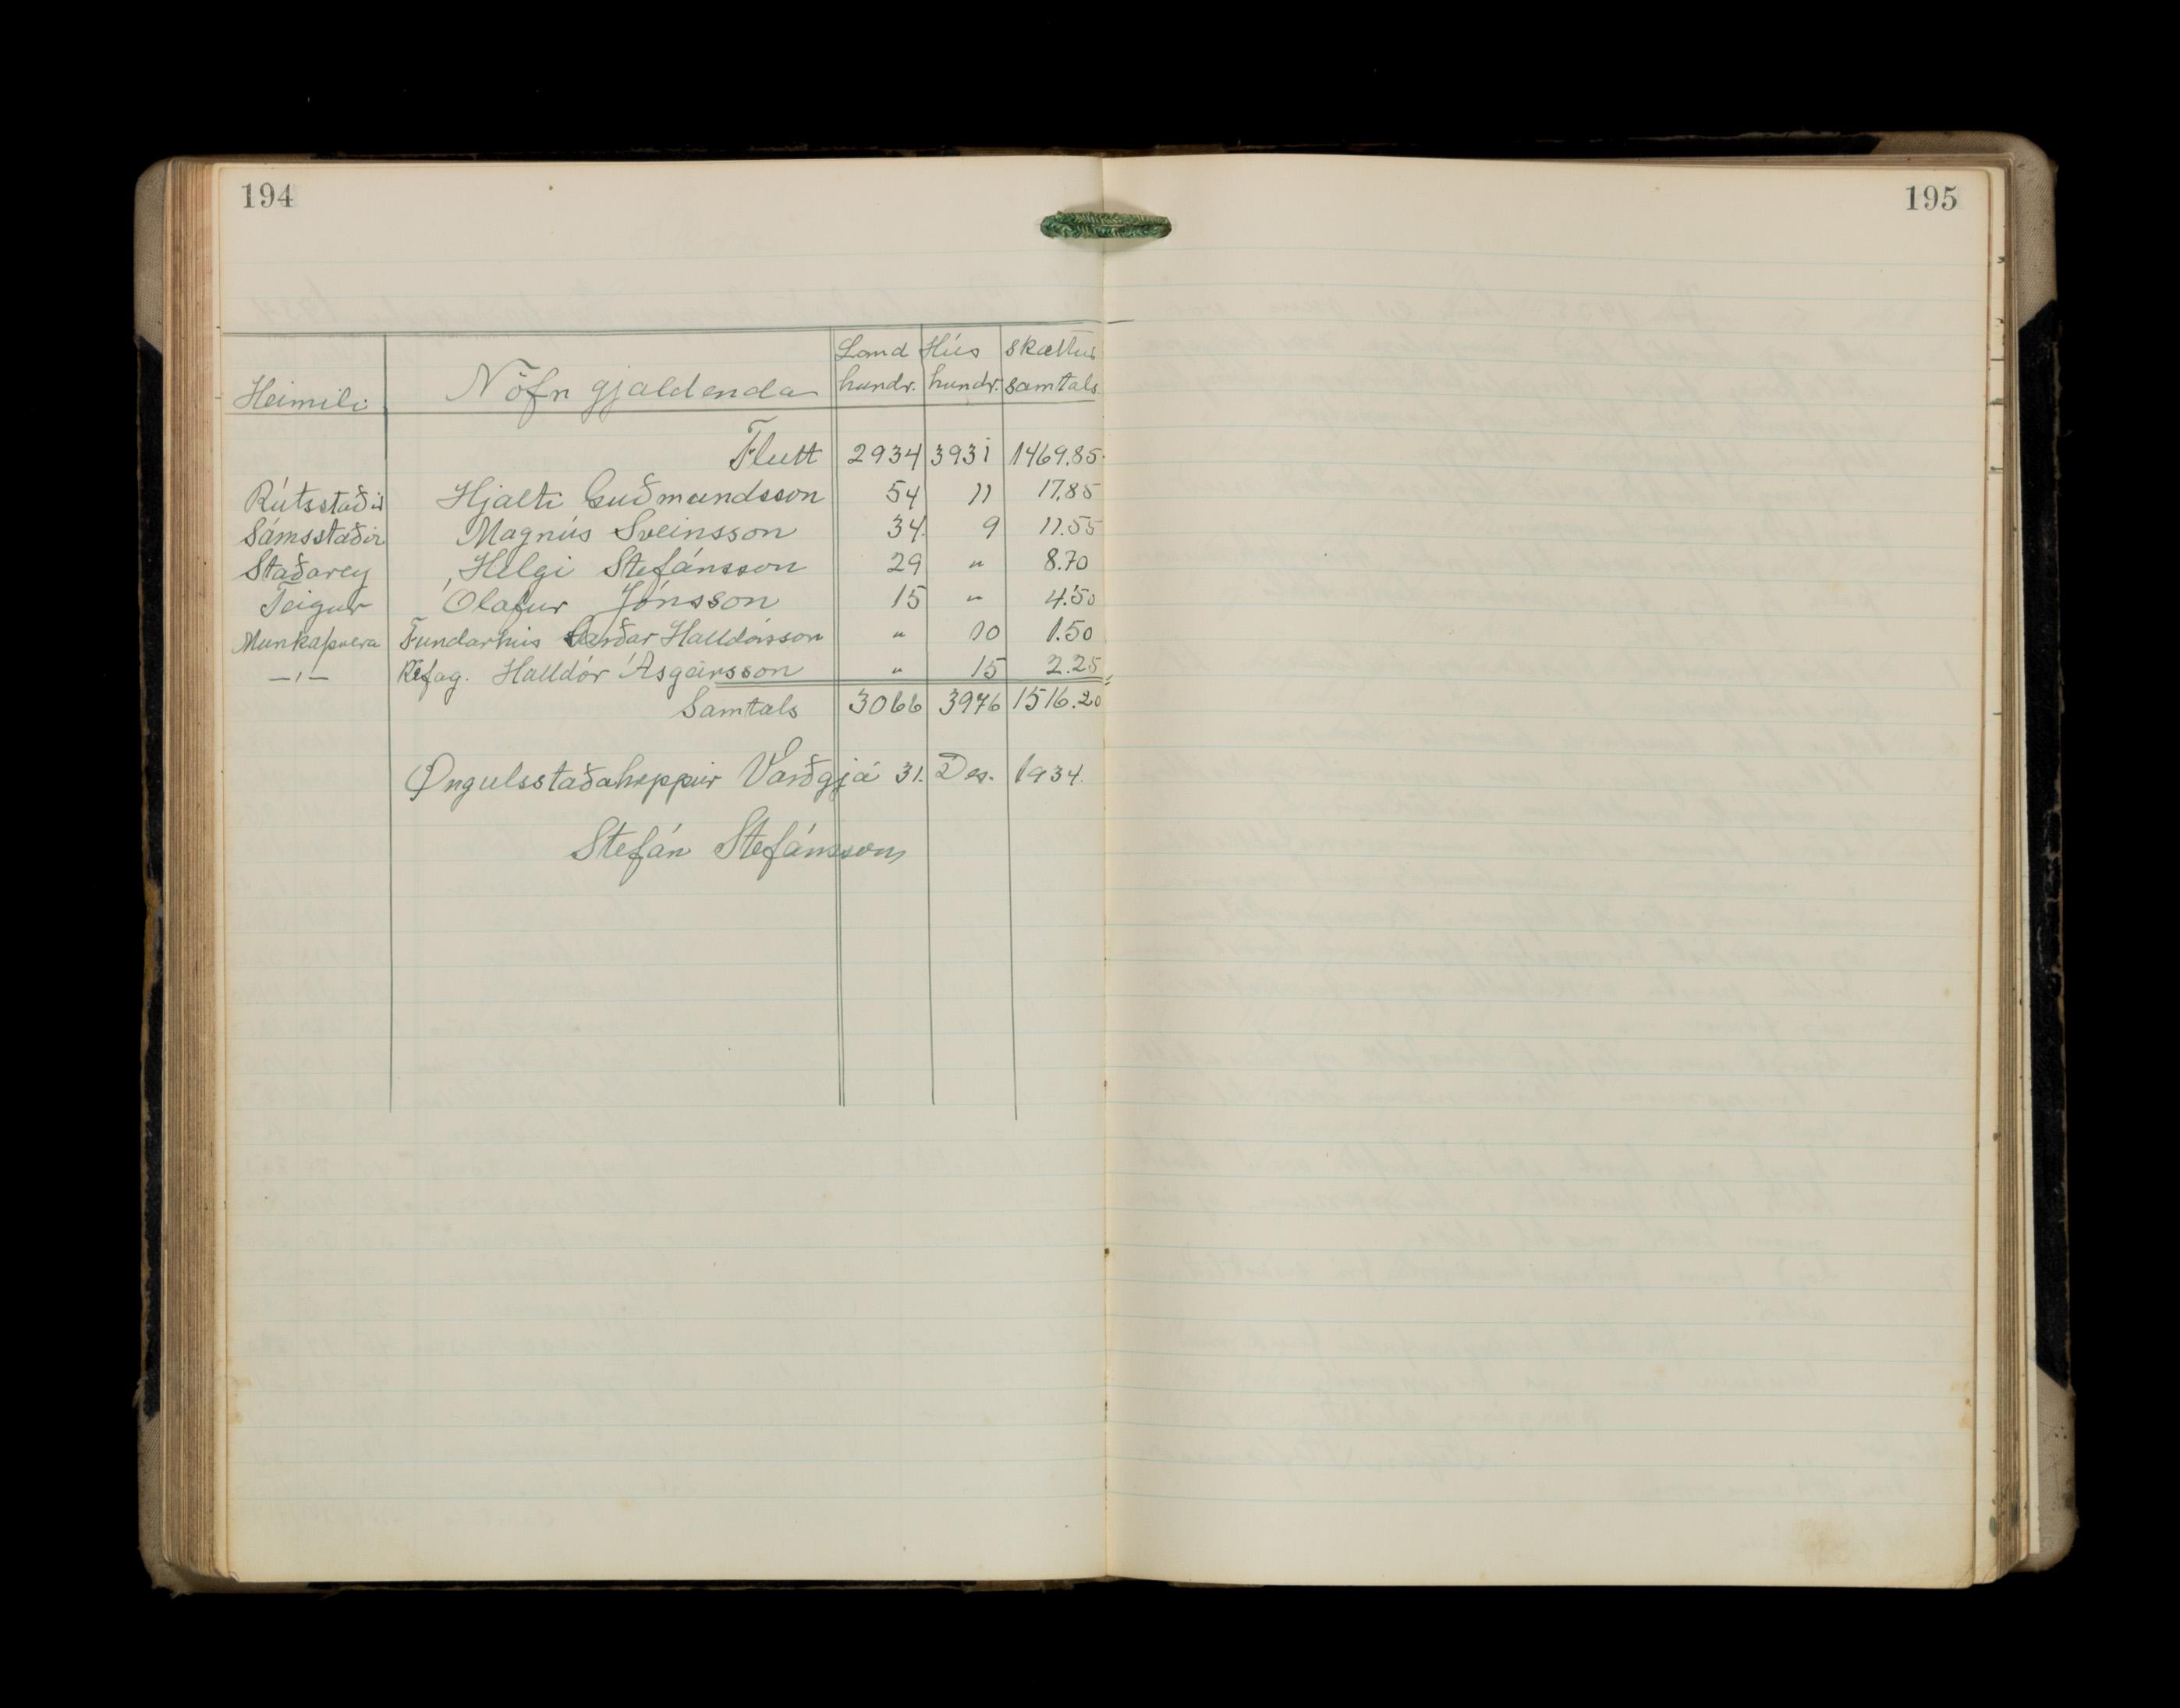 194
195
Heimili Nöfn gjaldenda Land hundr. Hús hundr. Skattur samtals
Flutt 2934 3931 1469.85
Rútsstaðir Hjalti Guðmundsson 54 11 17.85
Sámsstaðir Magnús Sveinsson 34 9 11.55
Staðarey Helgi Stefánsson 29 " 8.70
Teigur Ólafur Jónsson 15 " 4.50
Munkaþvera Fundarhús Garðar Halldórsson " 10 1.50
—"— Refag. Halldór Ásgeirsson " 15 2.25
Samtals 3066 3976 1516.20
Öngulsstaðahreppur Varðgjá 31. Des. 1934.
Stefán Stefánsson